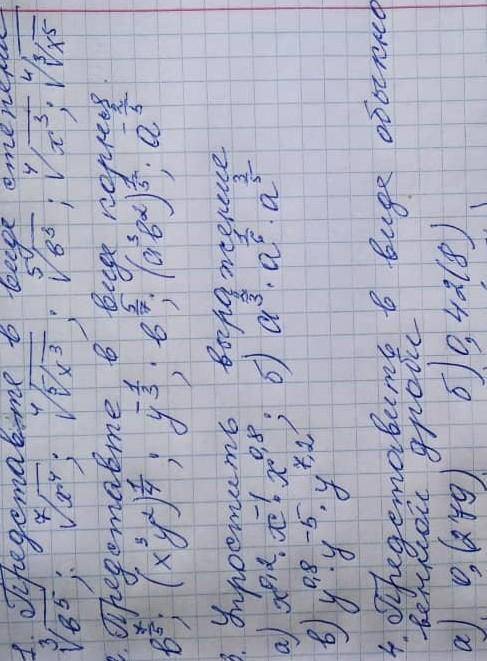 1. Представьте в виде степени
∛(в⁵); ⁷√(x⁴); ⁴√(⁵√(x³)); ⁵√(в³); ⁴√(x³); ⁴√(³√(x⁵))
2. Представте в виде корня
в^(7/5); (x³y²)^(1/4); y^(-1/3); в^(5/7); (а³в²)^(1/5); а^(-2/5)
3. Упростить выражение
а) x^0,2 · x^-1 · x^0,8; б) а^(2/3) · а^(1/6) · а^(3/5)
в) y^0,8 · y^-5 · y^7,2
4. Представить в виде обыкно
венной дроби
а) 0,(279) б) 0,42(8)